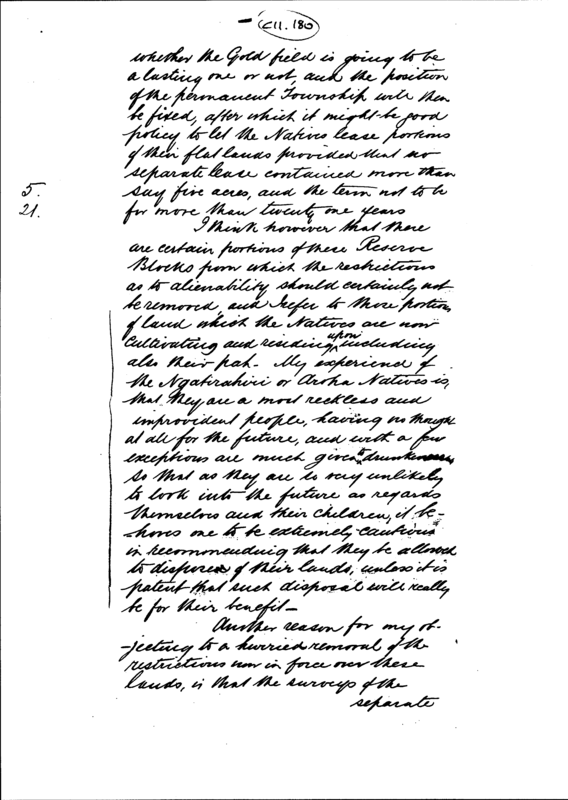 C11. 180
whether the Gold field is going to be
a lasting one or not, and the position
of the permanent Township will then
be fixed, after which it might be good
policy to let the Natives lease portions
of their flat lands provided that no
separate lease contained more than
5. say five acres, and the term not to be
21. for more than twenty one years
I think however that there
are certain portions of these Reserve
Blocks from which the restrictions
as to alienability should certainly not
be removed, and I refer to those portions
of land which the Natives are now
cultivating and residing upon including
also their pah - My experience of
the Ngatirahiri or Aroha Natives is,
that they are a most reckless and
improvident people, having no thought
at all for the future, and with a few
exceptions are much given to drunkenness
so that as they are so very unlikely
to look into the future as regards
themselves and their children, it be-
-hoves one to be extremely cautious
in recommending that they be allowed
to dispose of their lands, unless it is
patent that such disposal will really
be for their benefit -
Another reason for my ob-
-jecting to a hurried removal of the
restrictions now in force over these
lands, is that the surveys of the
separate